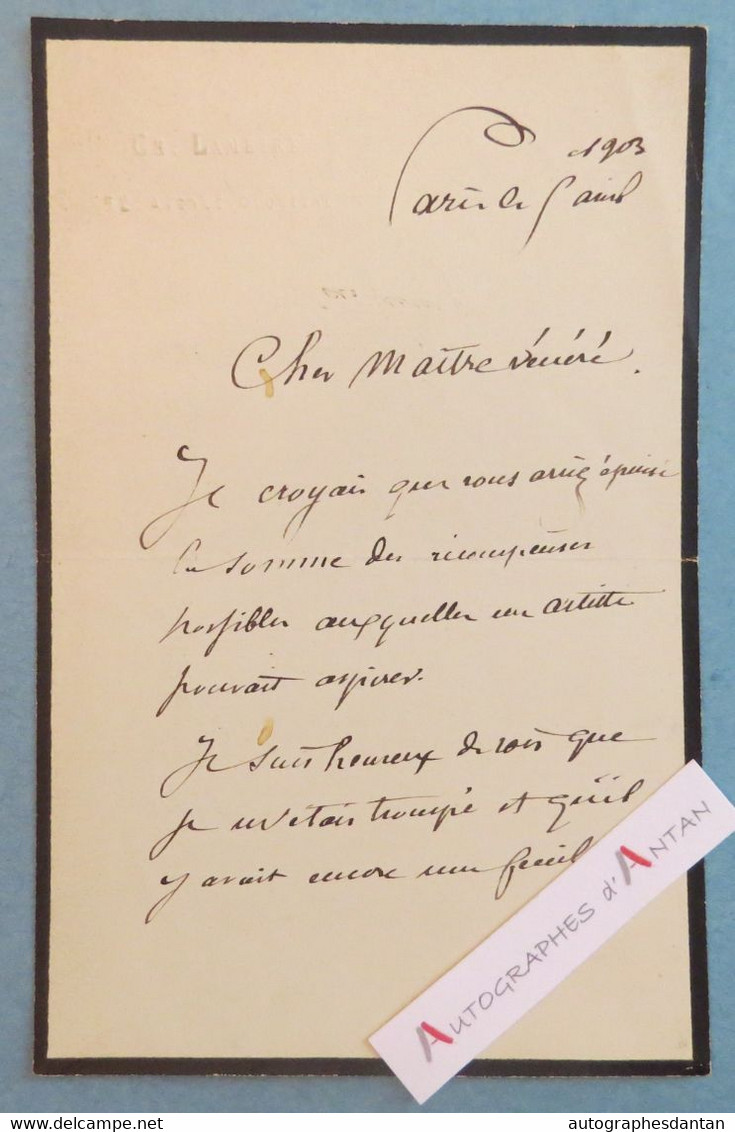 1903
Paris le 5 avril
Cher Maître vénéré.
Je croyais que vous aviez épuisé
la somme des récompenses
possibles auxquelles un artiste
pouvait aspirer.
Je suis heureux de voir que
je m'etais trompé et qu'il
y avait encore une
AUTOGRAPHES d'ANTAN
delcampe.net
autographesdantan